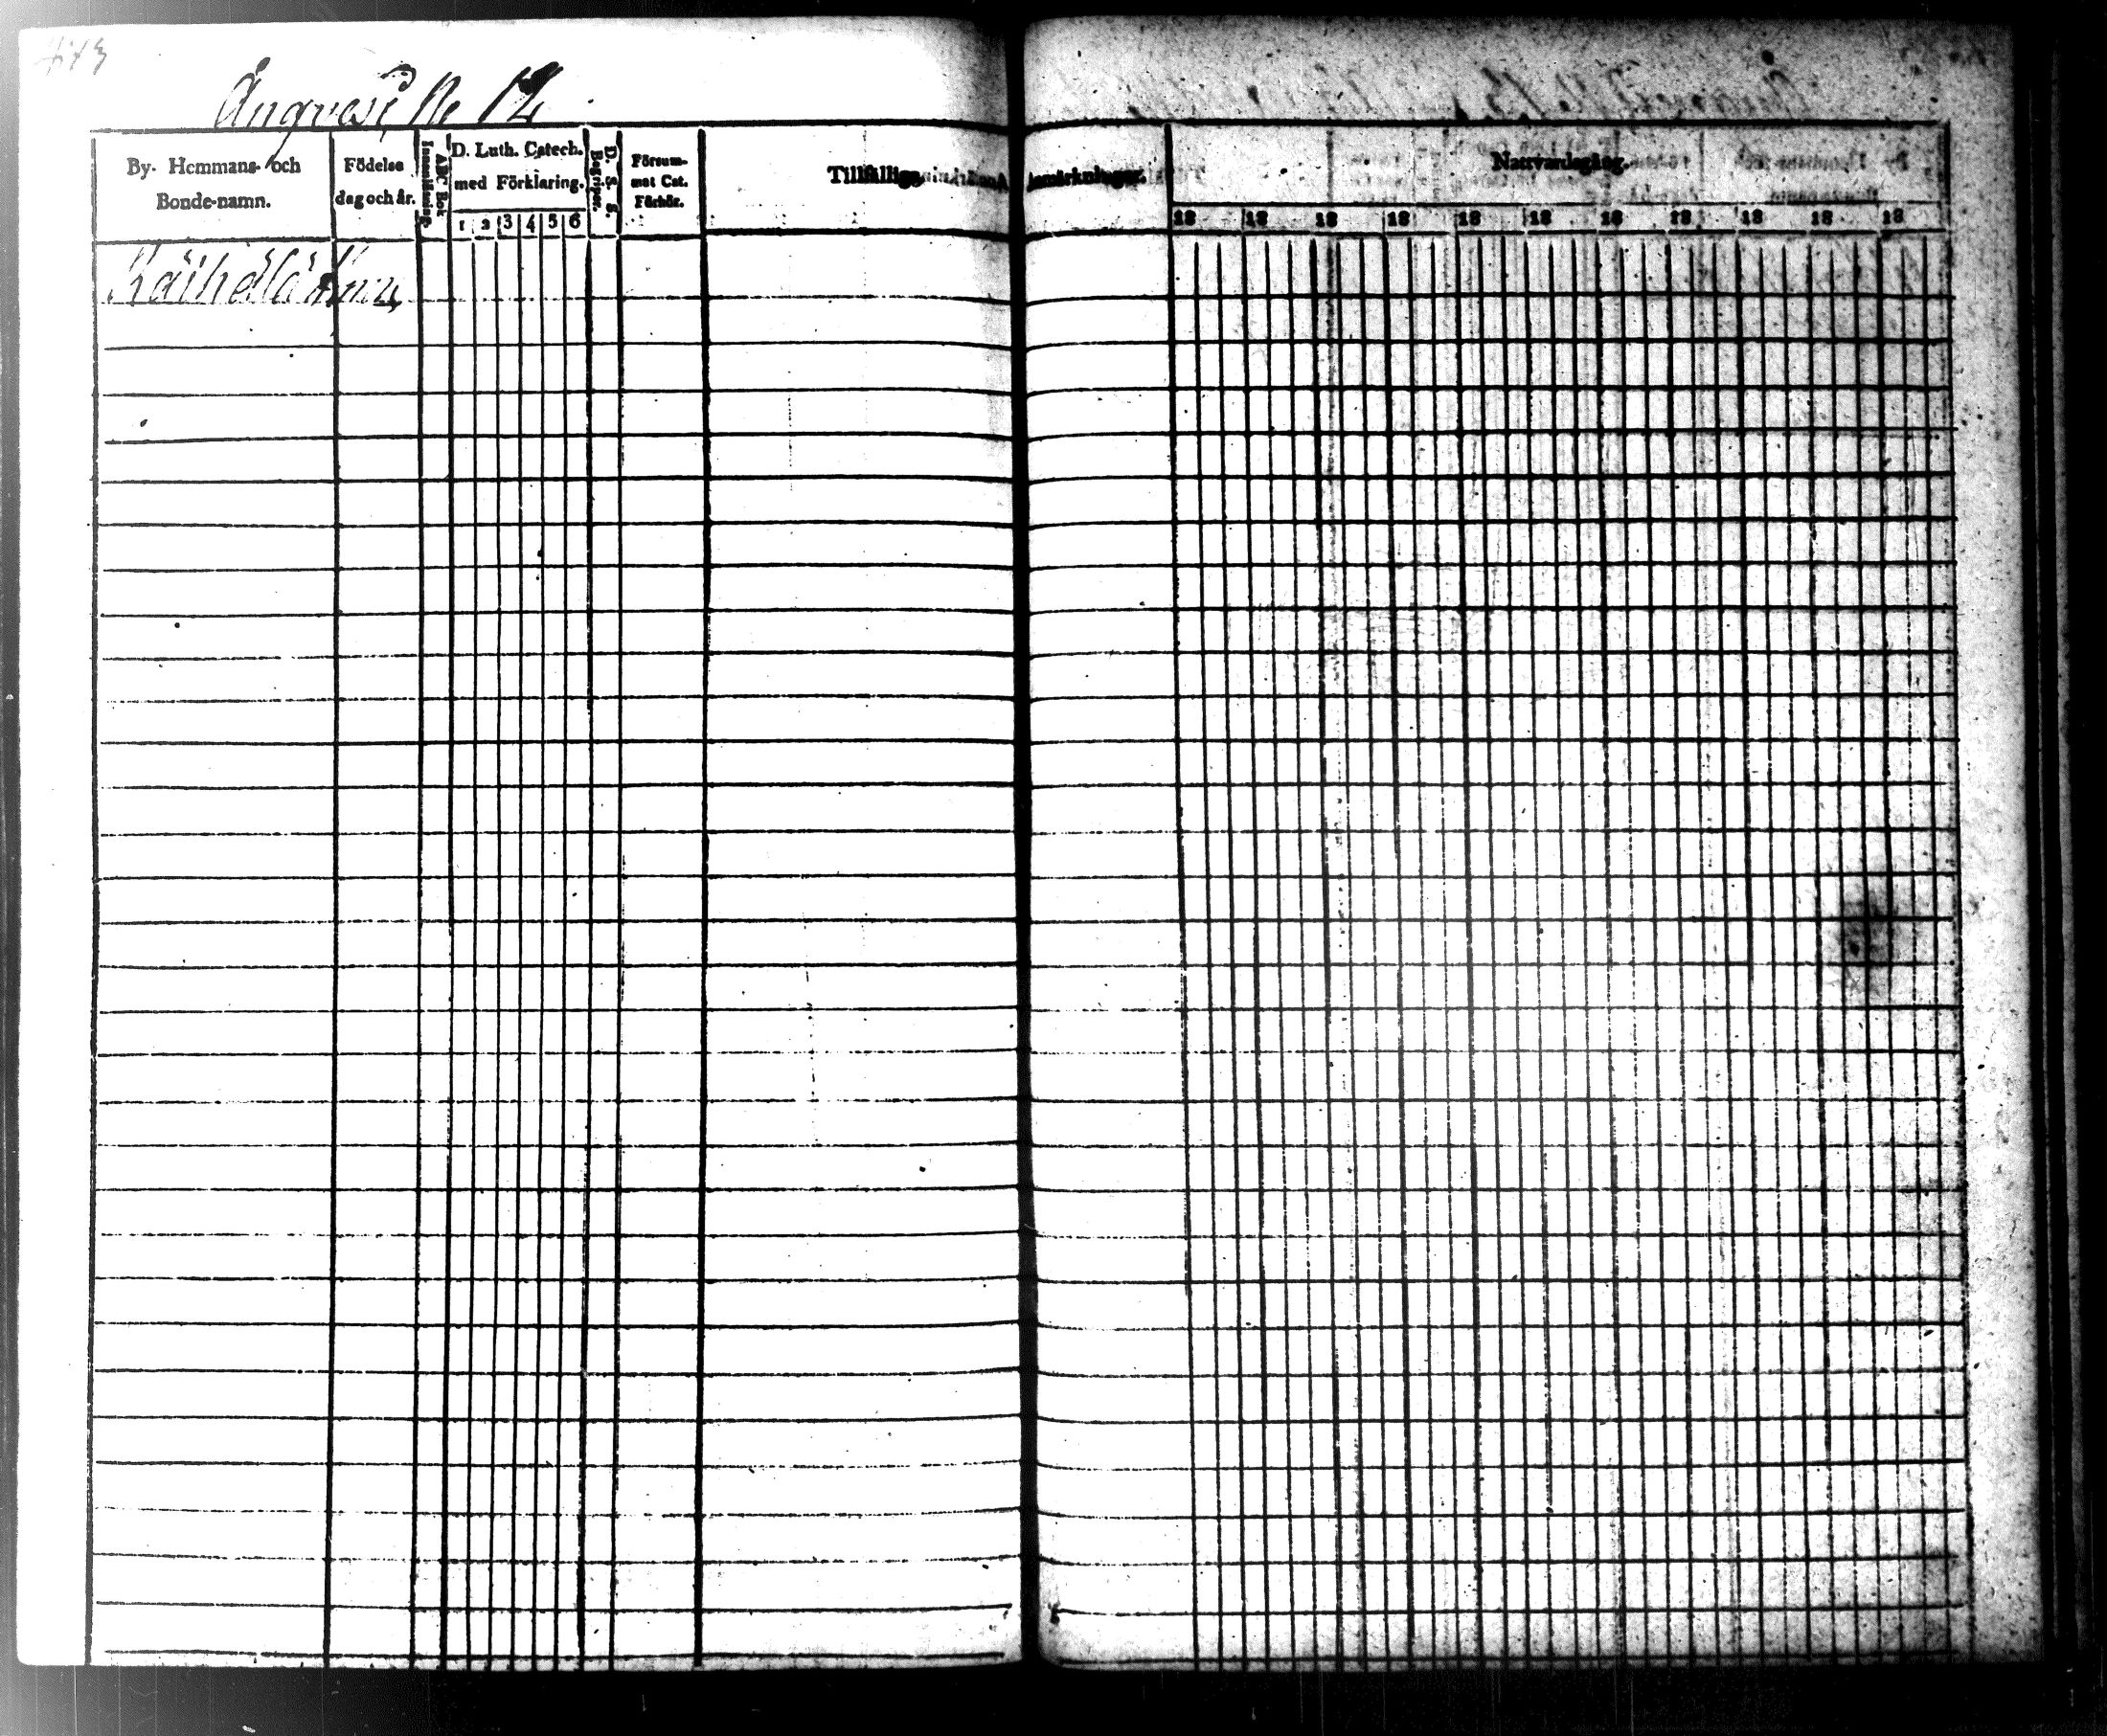 473
Ångvesi, № 12
By- Hemmans- och Bonde-namn.
Födelse dag och år.
ABC Bok
Innanläsning.
D. Luth. Catech. med Förklaring.
1 2 3 4 5 6
D. S. S.
Begriper.
Försummat Cat. Förhör.
Tillfällige
Anmärkningar.
Nattvardsgång.
18 18 18 18 18 18 18 18 18 18 18